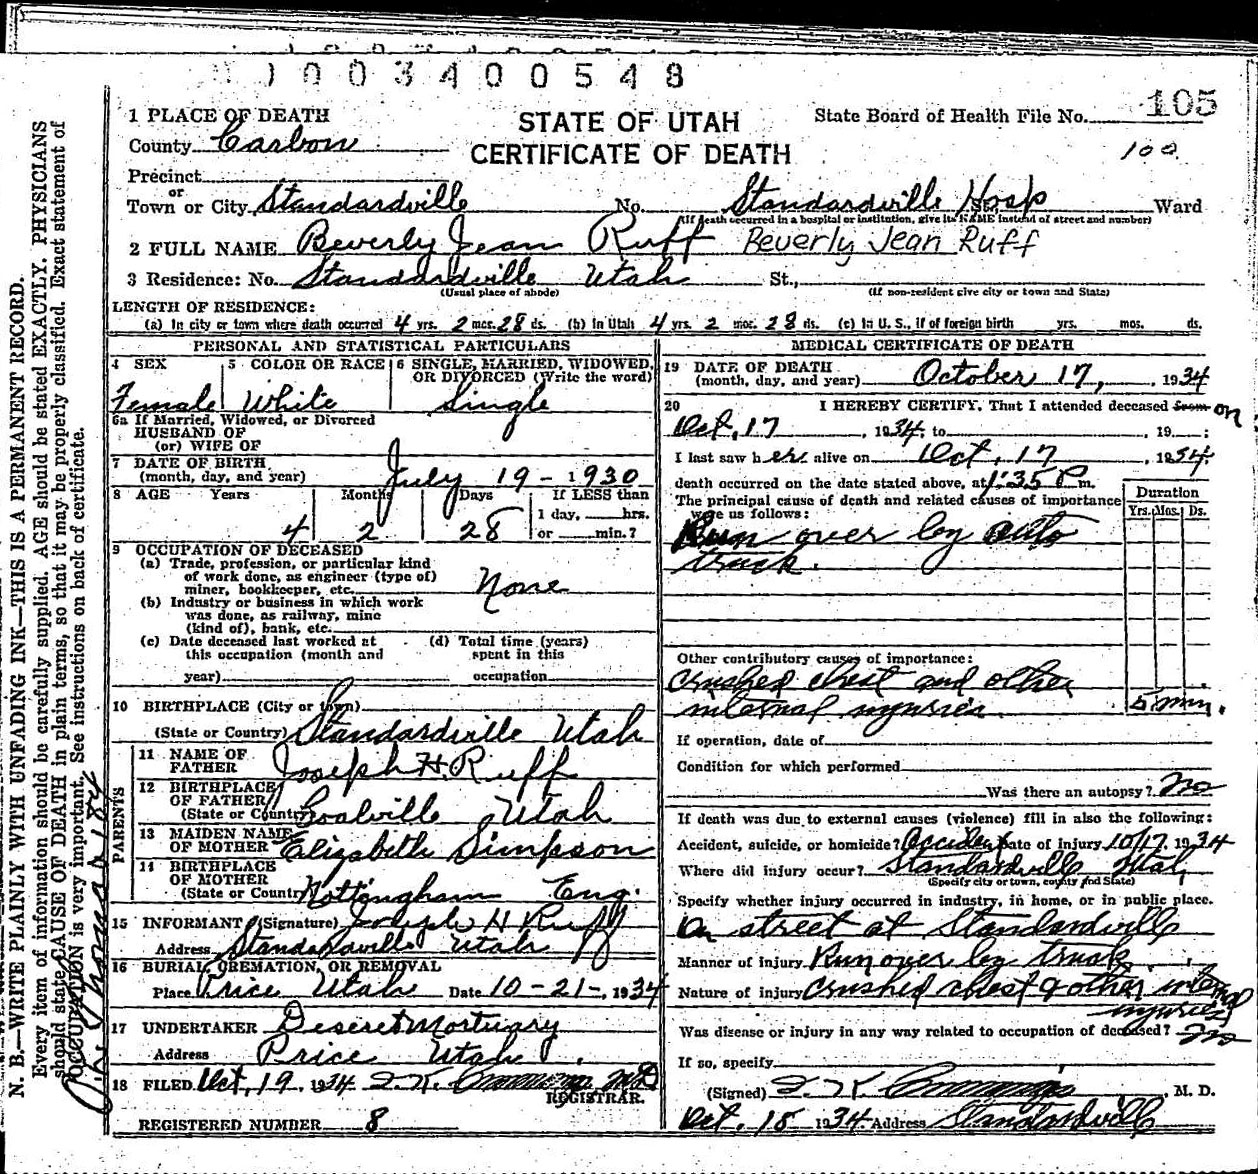 1003400548
1 PLACE OF DEATH
STATE OF UTAH
CERTIFICATE OF DEATH
State Board of Health File No. 105
100
County Carbon
Precinct
or
Town or City Standardville No. Standardville Hosp Ward
(If death occurred in a hospital or institution, give its NAME instead of street and number)
2 FULL NAME Beverly Jean Ruff Beverly Jean Ruff
3 Residence: No. Standardville Utah St.,
(Usual place of abode) (If non-resident give city or town and State)
LENGTH OF RESIDENCE:
(a) In city or town where death occurred 4 yrs. 2 mos. 28 ds. (b) In Utah 4 yrs. 2 mos. 28 ds. (c) In U. S., if of foreign birth yrs. mos. ds.
PERSONAL AND STATISTICAL PARTICULARS
4 SEX Female
5 COLOR OR RACE White
6 SINGLE, MARRIED, WIDOWED,
OR DIVORCED (Write the word)
Single
6a If Married, Widowed, or Divorced
HUSBAND OF
(or) WIFE OF
7 DATE OF BIRTH
(month, day, and year) July 19 - 1930
8 AGE Years Months Days If LESS than
1 day, hrs.
4 2 28 or min.?
9 OCCUPATION OF DECEASED
(a) Trade, profession, or particular kind
of work done, as engineer (type of)
miner, bookkeeper, etc. None
(b) Industry or business in which work
was done, as railway, mine
(kind of), bank, etc.
(c) Date deceased last worked at
this occupation (month and
year)
(d) Total time (years)
spent in this
occupation
10 BIRTHPLACE (City or town)
(State or Country) Standardville Utah
PARENTS
11 NAME OF
FATHER Joseph H. Ruff
12 BIRTHPLACE
OF FATHER
(State or Country) Coalville Utah
13 MAIDEN NAME
OF MOTHER Elizabeth Simpson
14 BIRTHPLACE
OF MOTHER
(State or Country) Nottingham Eng.
15 INFORMANT (Signature) Joseph H Ruff
Address Standardville Utah
16 BURIAL, CREMATION, OR REMOVAL
Place Price Utah Date 10-21-, 1934
17 UNDERTAKER Deseret Mortuary
Address Price Utah
18 FILED Oct, 19, 1934 MD
REGISTRAR.
REGISTERED NUMBER 8
MEDICAL CERTIFICATE OF DEATH
19 DATE OF DEATH
(month, day, and year) October 17, , 1934
20 I HEREBY CERTIFY, That I attended deceased from on
Oct, 17 , 1934, to , 19 ;
I last saw her alive on Oct, 17 , 1934.
death occurred on the date stated above, at 1:35 P m.
The principal cause of death and related causes of importance
were as follows:
Duration
Yrs. Mos. Ds.
Run over by auto
truck.
Other contributory causes of importance:
Crushed chest and other
internal injuries. 5 min.
If operation, date of
Condition for which performed
Was there an autopsy? No
If death was due to external causes (violence) fill in also the following:
Accident, suicide, or homicide? Accident Date of injury 10/17, 1934
Where did injury occur? Standardville Utah,
(Specify city or town, county and State)
Specify whether injury occurred in industry, in home, or in public place.
On street at Standardville
Manner of injury Run over by truck.
Nature of injury Crushed chest & other internal
injuries
Was disease or injury in any way related to occupation of deceased? No
If so, specify
(Signed) , M. D.
Oct. 18 1934 Address Standardville
N. B.—WRITE PLAINLY WITH UNFADING INK—THIS IS A PERMANENT RECORD.
Every item of information should be carefully supplied. AGE should be stated EXACTLY. PHYSICIANS
should state CAUSE OF DEATH in plain terms, so that it may be properly classified. Exact statement of
OCCUPATION is very important. See instructions on back of certificate.